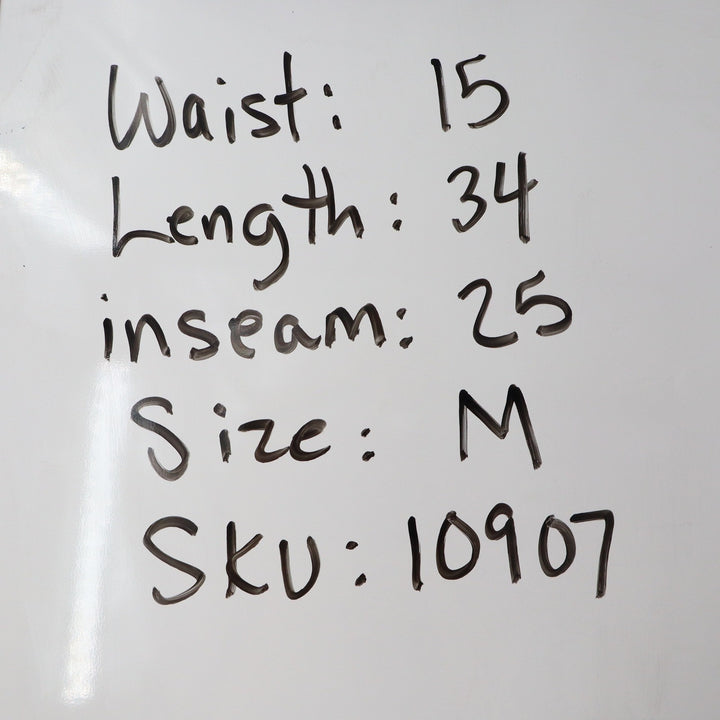 Waist: 15
Length: 34
inseam: 25
Size: M
SKU: 10907